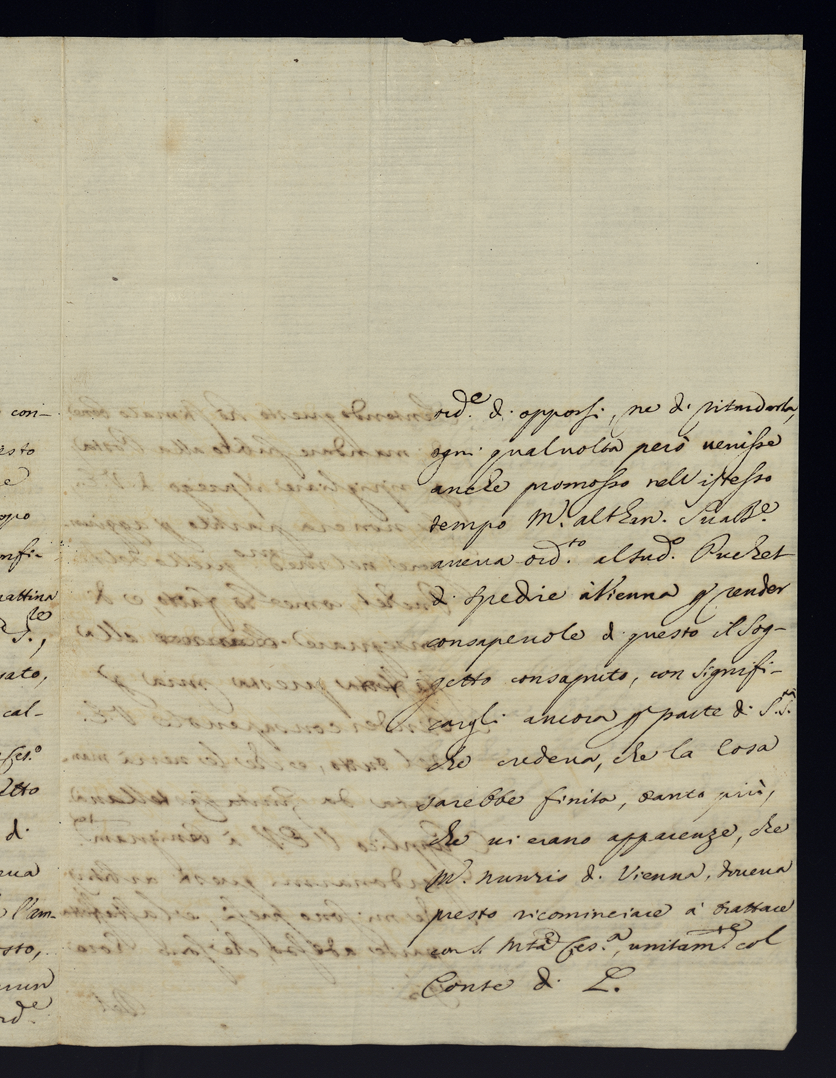 con-
esto
opo
nifi-
mattina
S.,
cal-
Ces.º
d.
l'am-
ord.e d. opporsi, ne di ritardarla,
ogni qualvolta però venisse
anche promosso nell'istesso
tempo M. althan. Il
aveva ord.to al sud.º Puchet
di spedire à Vienna p render
consapevole di questo il Sog-
getto consaputo, con signifi-
cargli ancora p parte di S. S.tà
che credeva, che la Cosa
sarebbe finita, tanto più,
che vi erano apparenze, che
M. nunzio di Vienna, doveva
presto ricominciare à trattare
con S. Mtà Ces.a, unitam.te col
Conte di L.